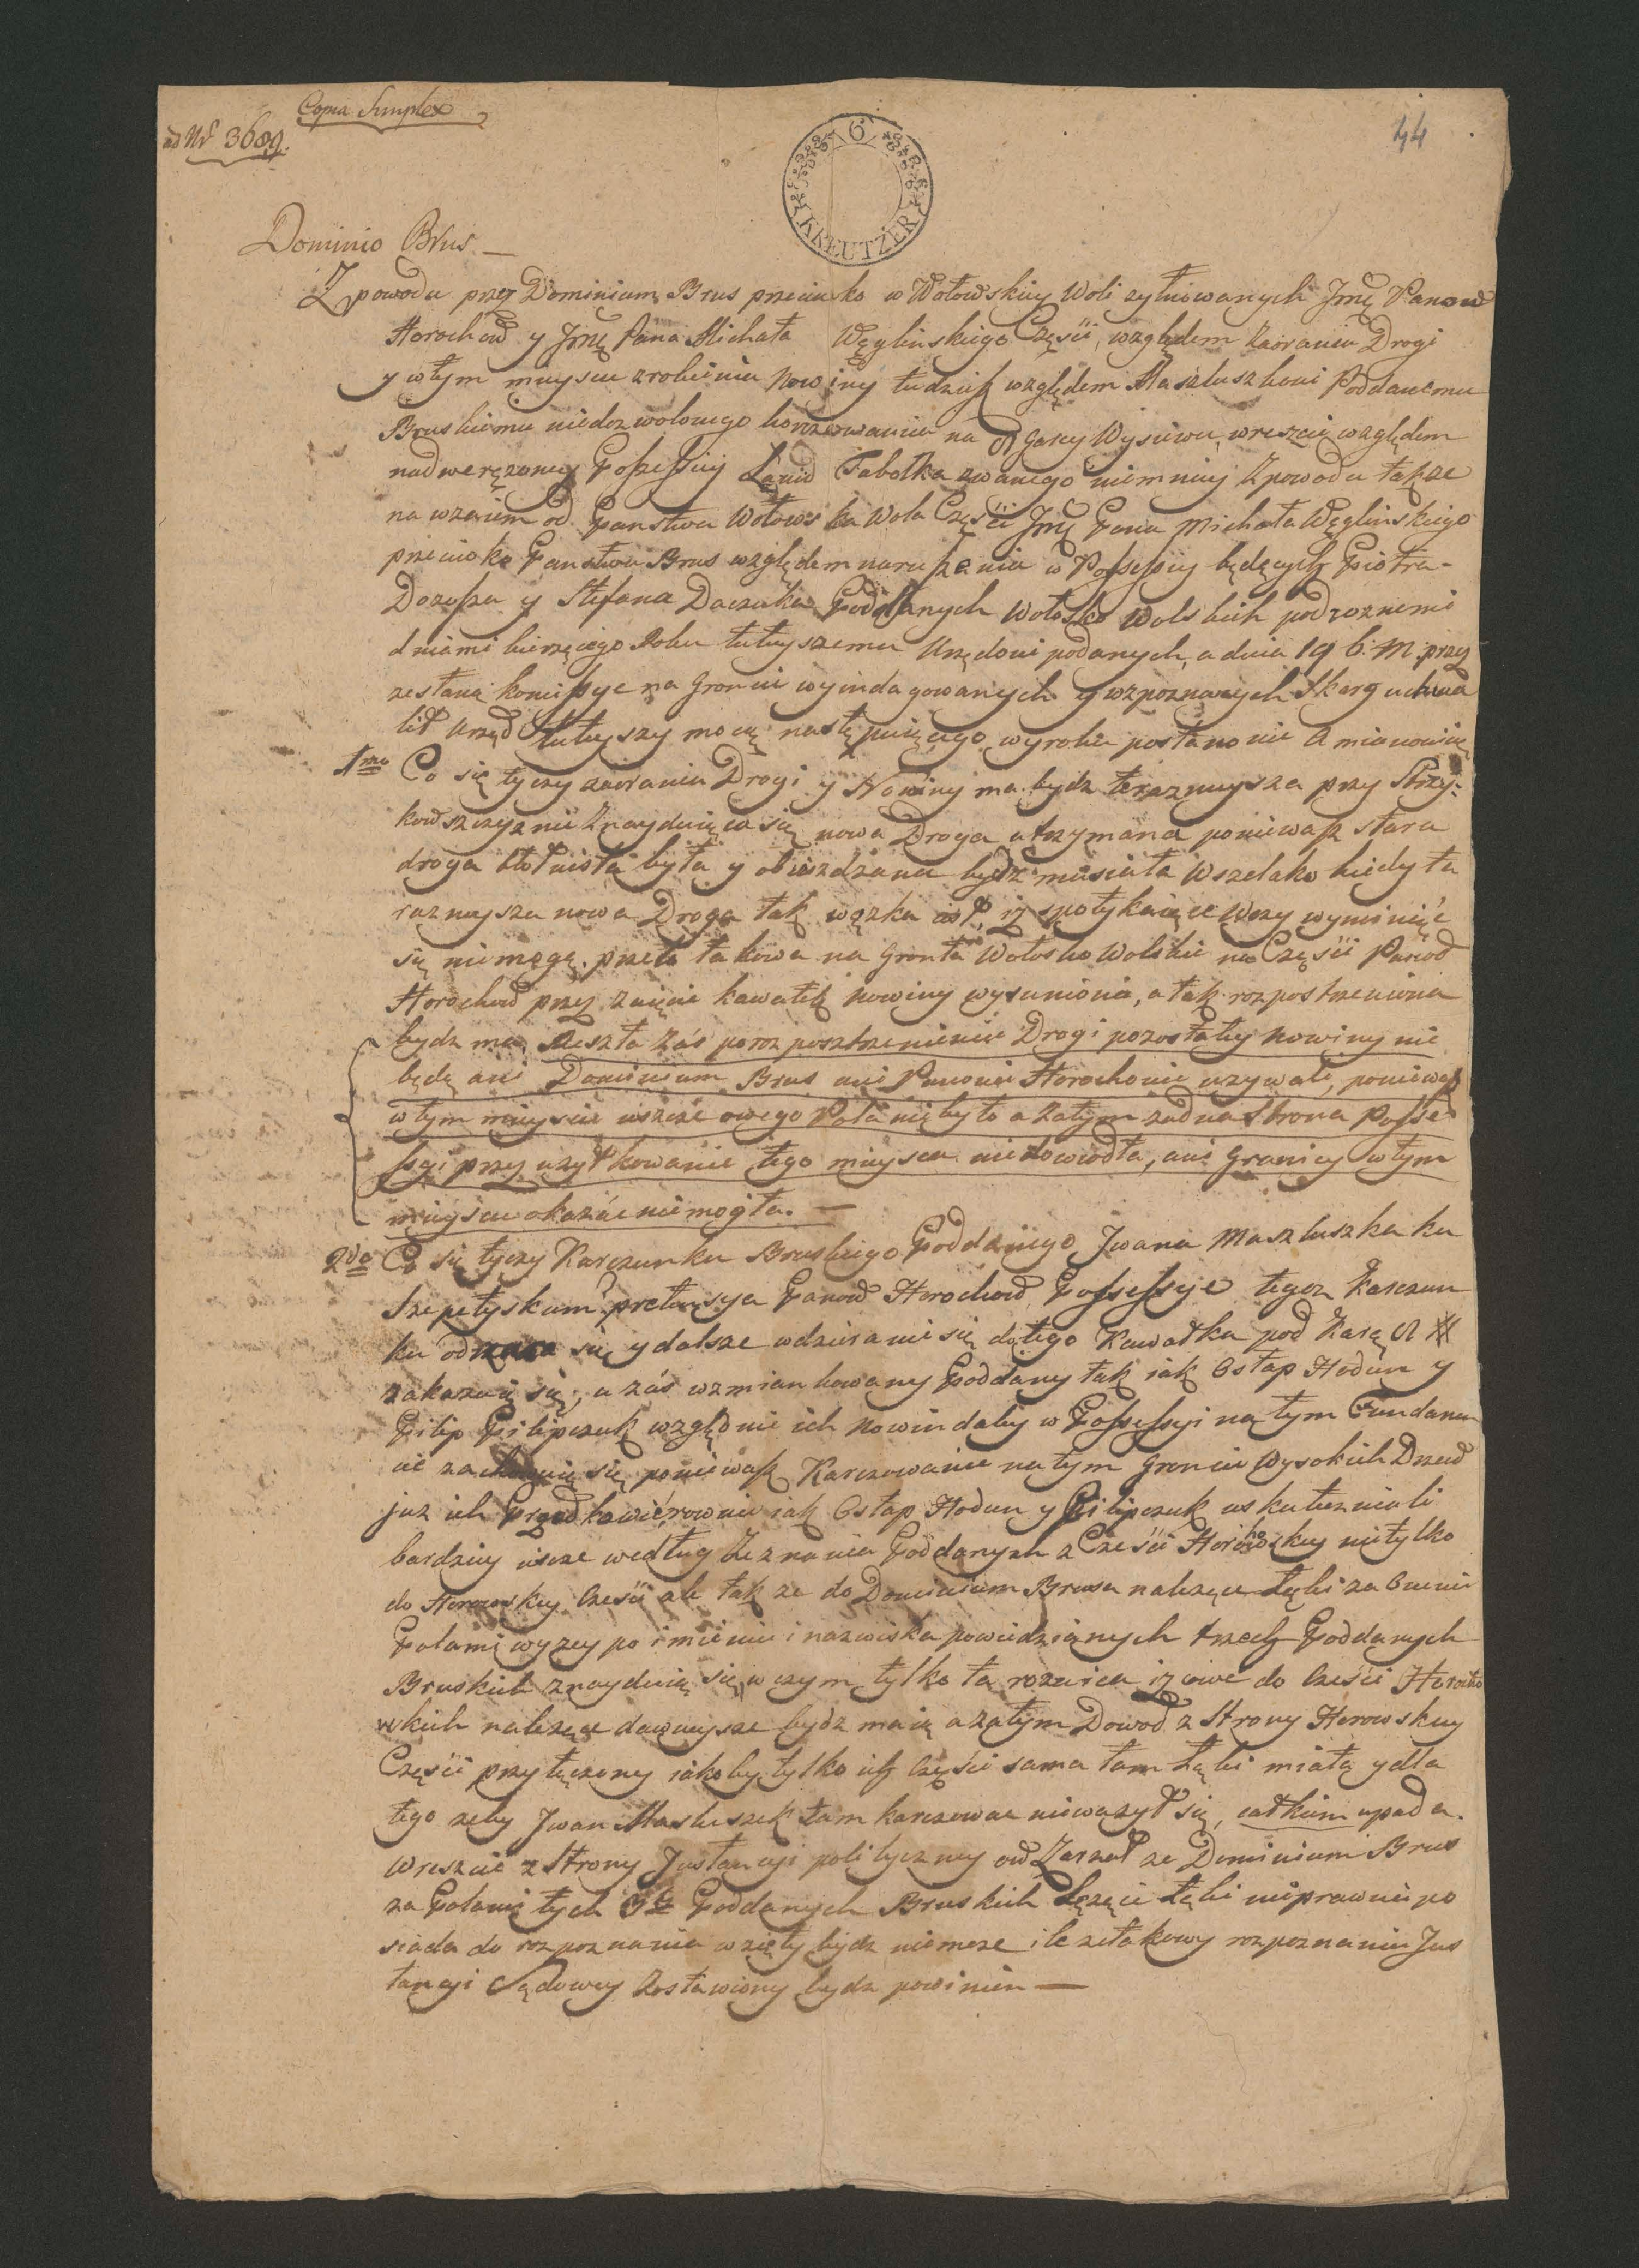 Copia Simplex
ad Nr 3689.
44
6
KREUTZER
Dominio Brus.—
Z powodu przez Dominium Brus przeciwko w Wołowskiey Woli sytuowanych Jmę Panow
Horochow y Jmę Pana Michała Węglinskiego Częsci, względem zaorania Drogi
y w tym mieyscu zrobienia Nowiny tudzież względem Maszluszkowi Poddanemu
Bruskiemu niedozwolonego karczowania na wreszcie względem
nadweręzoney Possessyi Ławid Tabolka zwanego niemniey z powodu także
na wzaiem od Panstwa Wołowska Wola Częsci Jmę Pana Michała Węglinskiego
przeciwko Panstwu Brus względem naruszenia w Possessyi będących Piotra
Dozusza y Stefana Daczuka Poddanych Wołosko Wolskich pod roznemi
dniami bierzącego Roku tuteyszemu Urzędowi podanych, a dnia 19 b. M. przez
zesłaną komissyę na Groncie wyindagowanych y rozpoznanych Skarg uchwa
lił Urząd tuteyszy mocą następuiącego wyroku postanowić a mianowicie
1mo Co się tyczy zaorania Drogi y Nowiny ma bydz terazneysza przy Strzy-
kowszczyznie znayduiąca się nowa Droga utrzymana poniewasz stara
droga błotnista była y obieżdzana bydz musiała Wszelako kiedy ta
razneysza nowa Droga tak wązka iest, iż spotykaiące Wozy wyminąć
się niemogą. przeto takowa na Gronta Wołosko Wolskie na Częsci Panow
Horochow przez zaięcie kawałek Nowiny wysuniona, a tak rozpostrzeniona
bydz ma, Reszta zaś po rozposztrzenieniu Drogi pozostałey Nowiny nie
będą ani Dominium Brus ani Panowie Horochowie uzywali, poniewasz
w tym mieyscu ieszcze owego Pola nie było a zatym zadna Strona Posse
ssyi przez uzytkowanie tego mieysca niedowiodła, ani Granicy w tym
mieyscu okazać niemogła. —
2do Co się tyczy Karczunku Bruskiego Poddanego Jwana Maszluszka ku
Szepetyskam pretensya Panow Horochow Possessye tegoz Karczun
ku się y dalsze wdzieranie się do tego Kawałka pod Karą
zakazuię się, a zaś wzmiankowany Poddany tak iak Ostap Hodun y
Filip Filipczuk względnie ich Nowin daley w Possessyi na tym Fundamen
cie się poniewasz Karczowanie na tym Groncie Wysokich Drzew
juz ich Przodkowie, rownie iak Ostap Hodun y Filipczuk uskuteczniali
bardziey iescze według Zeznania Poddanych z Częsci Horochowskiey nietylko
do Horowskiey Częsci ale takze do Dominium Brusa nalezące Łęki za Onemi
Polami wyzey po imieniu i nazwiska powiedzianych trzech Poddanych
Bruskich znayduią się, w czym tylko ta roznica iz owe do Częsci Horocho
wskich nalezące dawneysze bydz maią a zatym Dowod z Strony Horowskiey
Częsci przyłączony iakoby tylko ich Częsci sama tam Łęki miała y dla
tego zeby Jwan Masluszek tam karczować niewazył się, całkiem upada.
Wreszcie z Strony Justancyi polityczney ow Zarzut ze Dominium Brus
za Polami tych 3ch Poddanych Bruskich Lezące Łęki nieprawnie po
siada do rozpoznania wzięty bydz niemoze ile ze takowy rozpoznaniu Jus
tancyi Sądowey zostawiony bydz powinien —